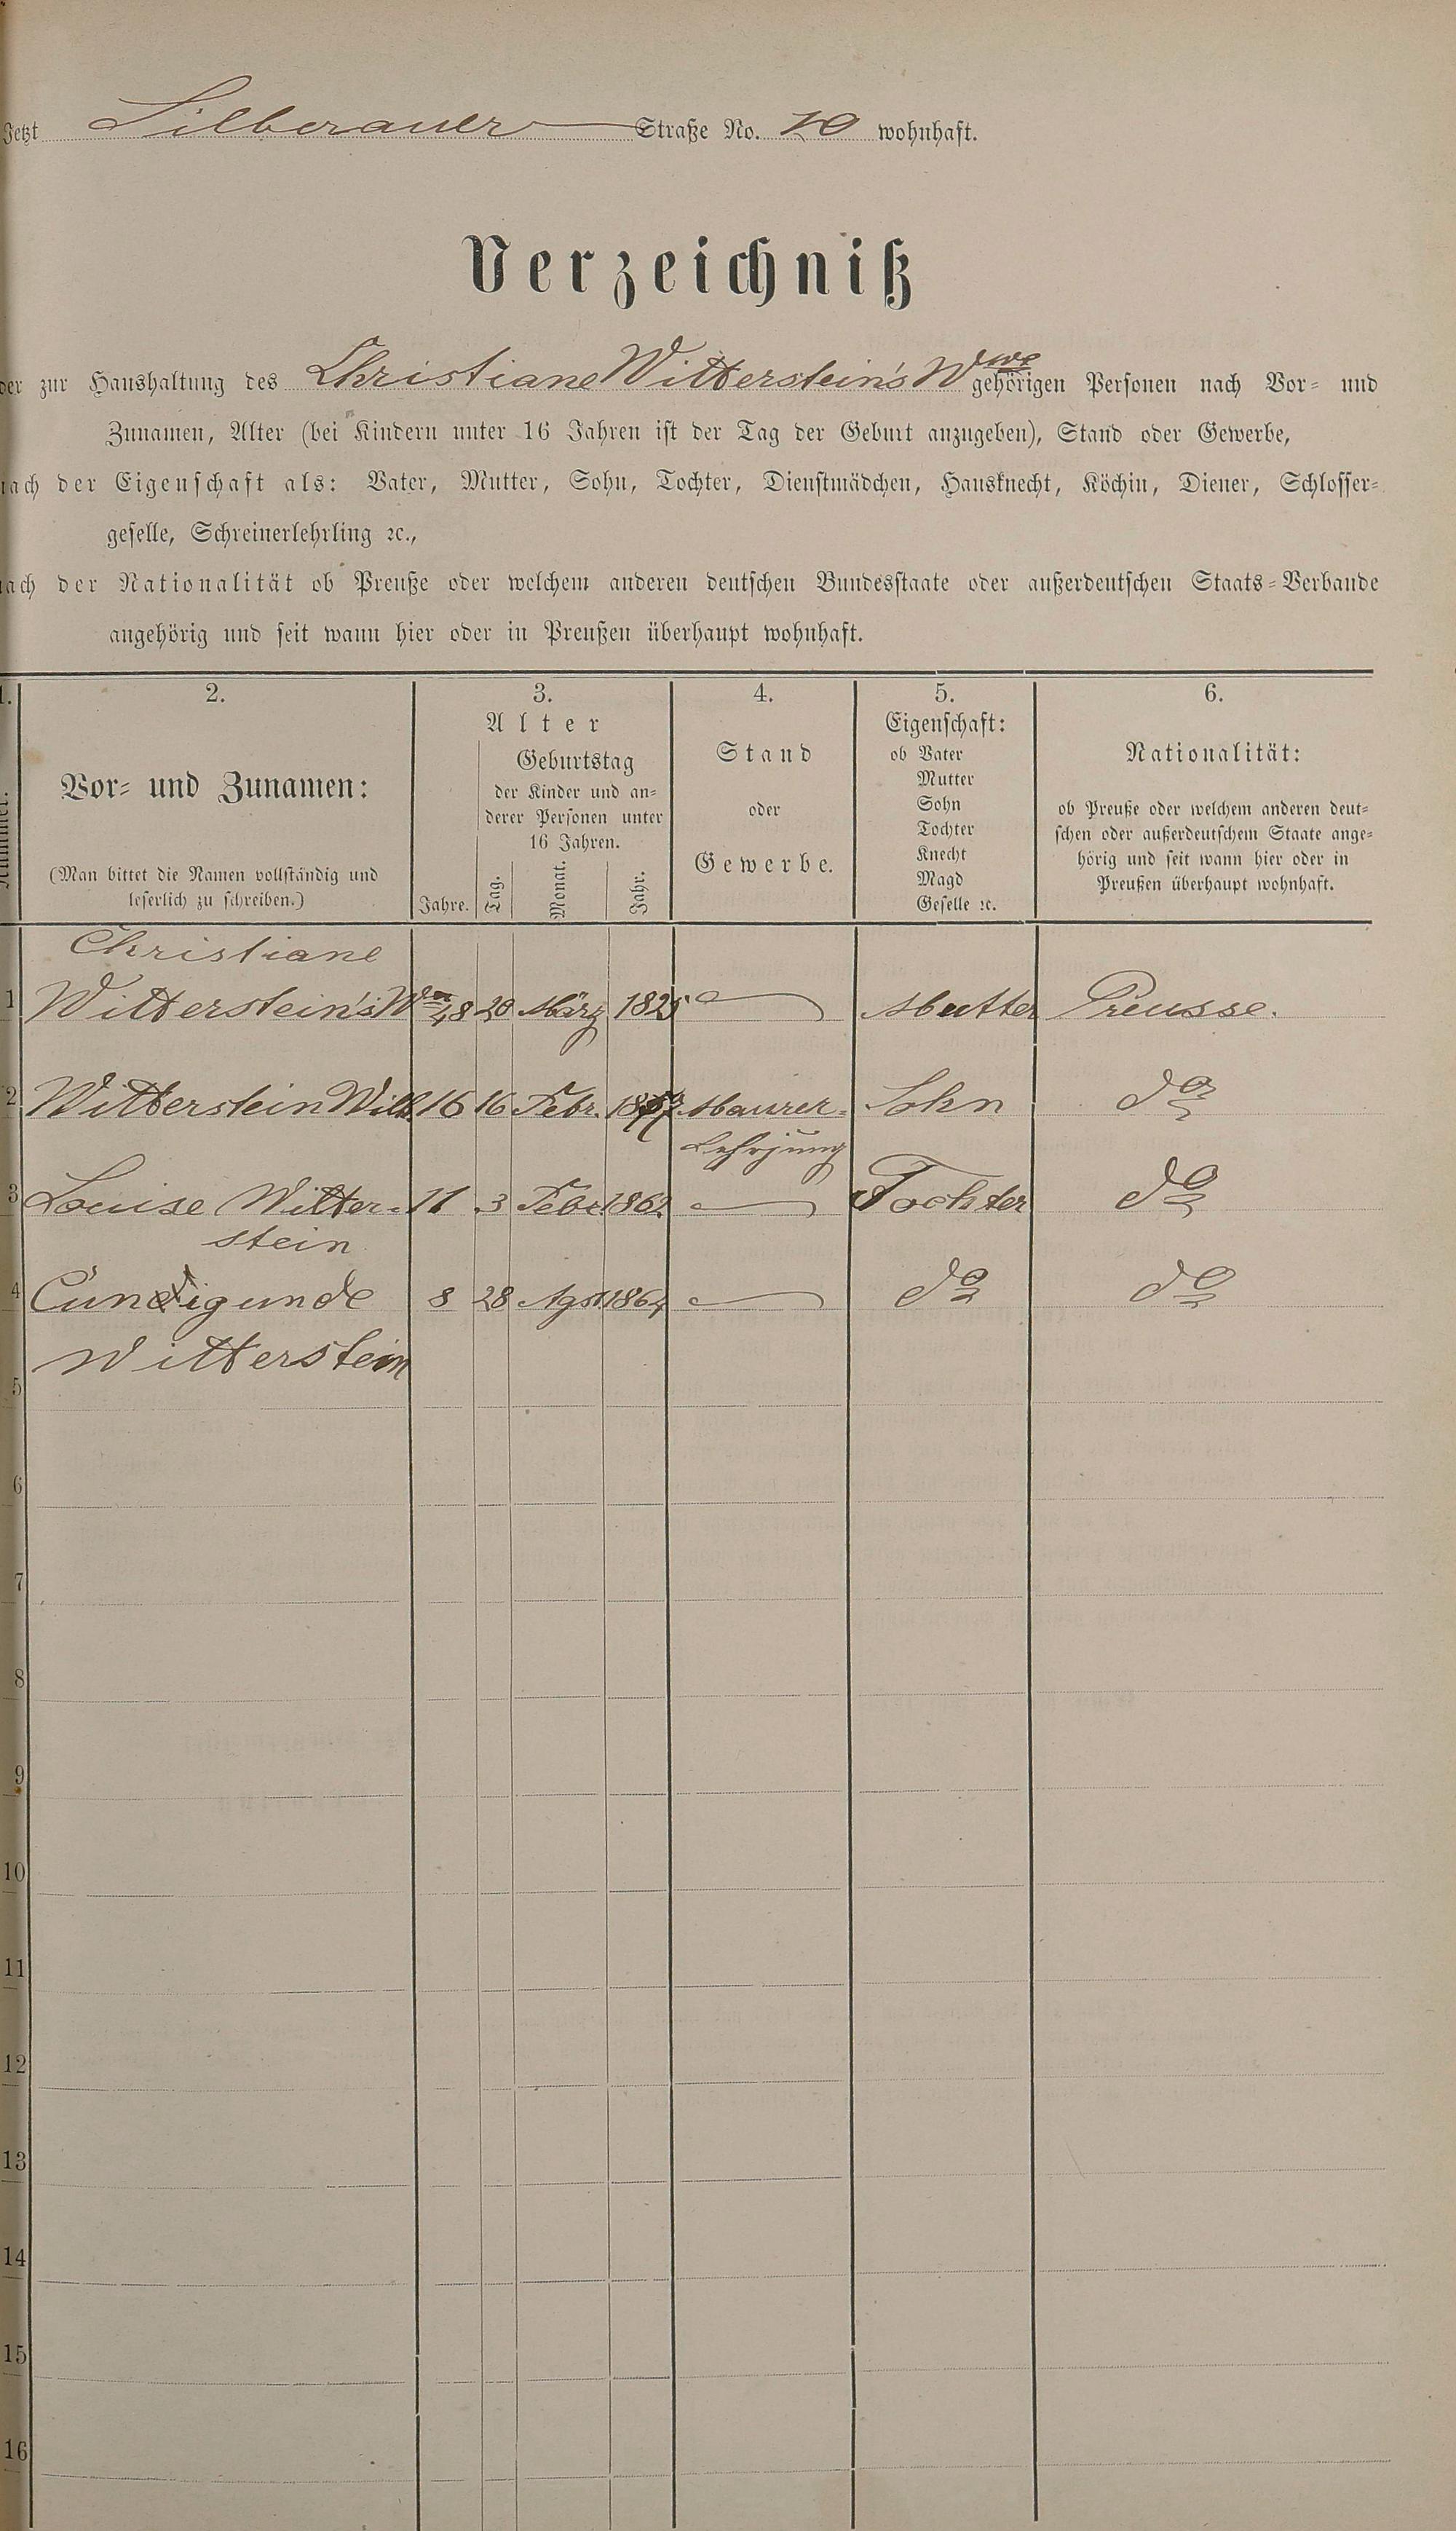 Jetzt Silberauer Straße No. 20 wohnhaft.
Verzeichniß
der zur Haushaltung des Christiane Witterstein's Wwe gehörigen Personen nach Vor- und
Zunamen, Alter (bei Kindern unter 16 Jahren ist der Tag der Geburt anzugeben), Stand oder Gewerbe,
nach der Eigenschaft als: Vater, Mutter, Sohn, Tochter, Dienstmädchen, Hausknecht, Köchin, Diener, Schlosser-
geselle, Schreinerlehrling ꝛc.,
nach der Nationalität ob Preuße oder welchem anderen deutschen Bundesstaate oder außerdeutschen Staats-Verbande
angehörig und seit wann hier oder in Preußen überhaupt wohnhaft.
1. 2. 3. 4. 5. 6.
Nummer.
Vor- und Zunamen:
(Man bittet die Namen vollständig und
leserlich zu schreiben.)
Alter
Geburtstag
der Kinder und an-
derer Personen unter
16 Jahren.
Jahre. Tag. Monat. Jahr.
Stand
oder
Gewerbe.
Eigenschaft:
ob Vater
Mutter
Sohn
Tochter
Knecht
Magd
Geselle ꝛc.
Nationalität:
ob Preuße oder welchem anderen deut-
schen oder außerdeutschem Staate ange-
hörig und seit wann hier oder in
Preußen überhaupt wohnhaft.
Christiane
1 Witterstein's Wwe 48 20 März 1825 Mutter Preusse.
2 Witterstein Wilh. 16 16 Febr. Maurer- Sohn do
Lehrjung
3 Louise Witter- 11 3 Febr 1862 Tochter do
stein
4 Cunigunde 8 28 Agst 1864 do do
Witterstein
5
6
7
8
9
10
11
12
13
14
15
16